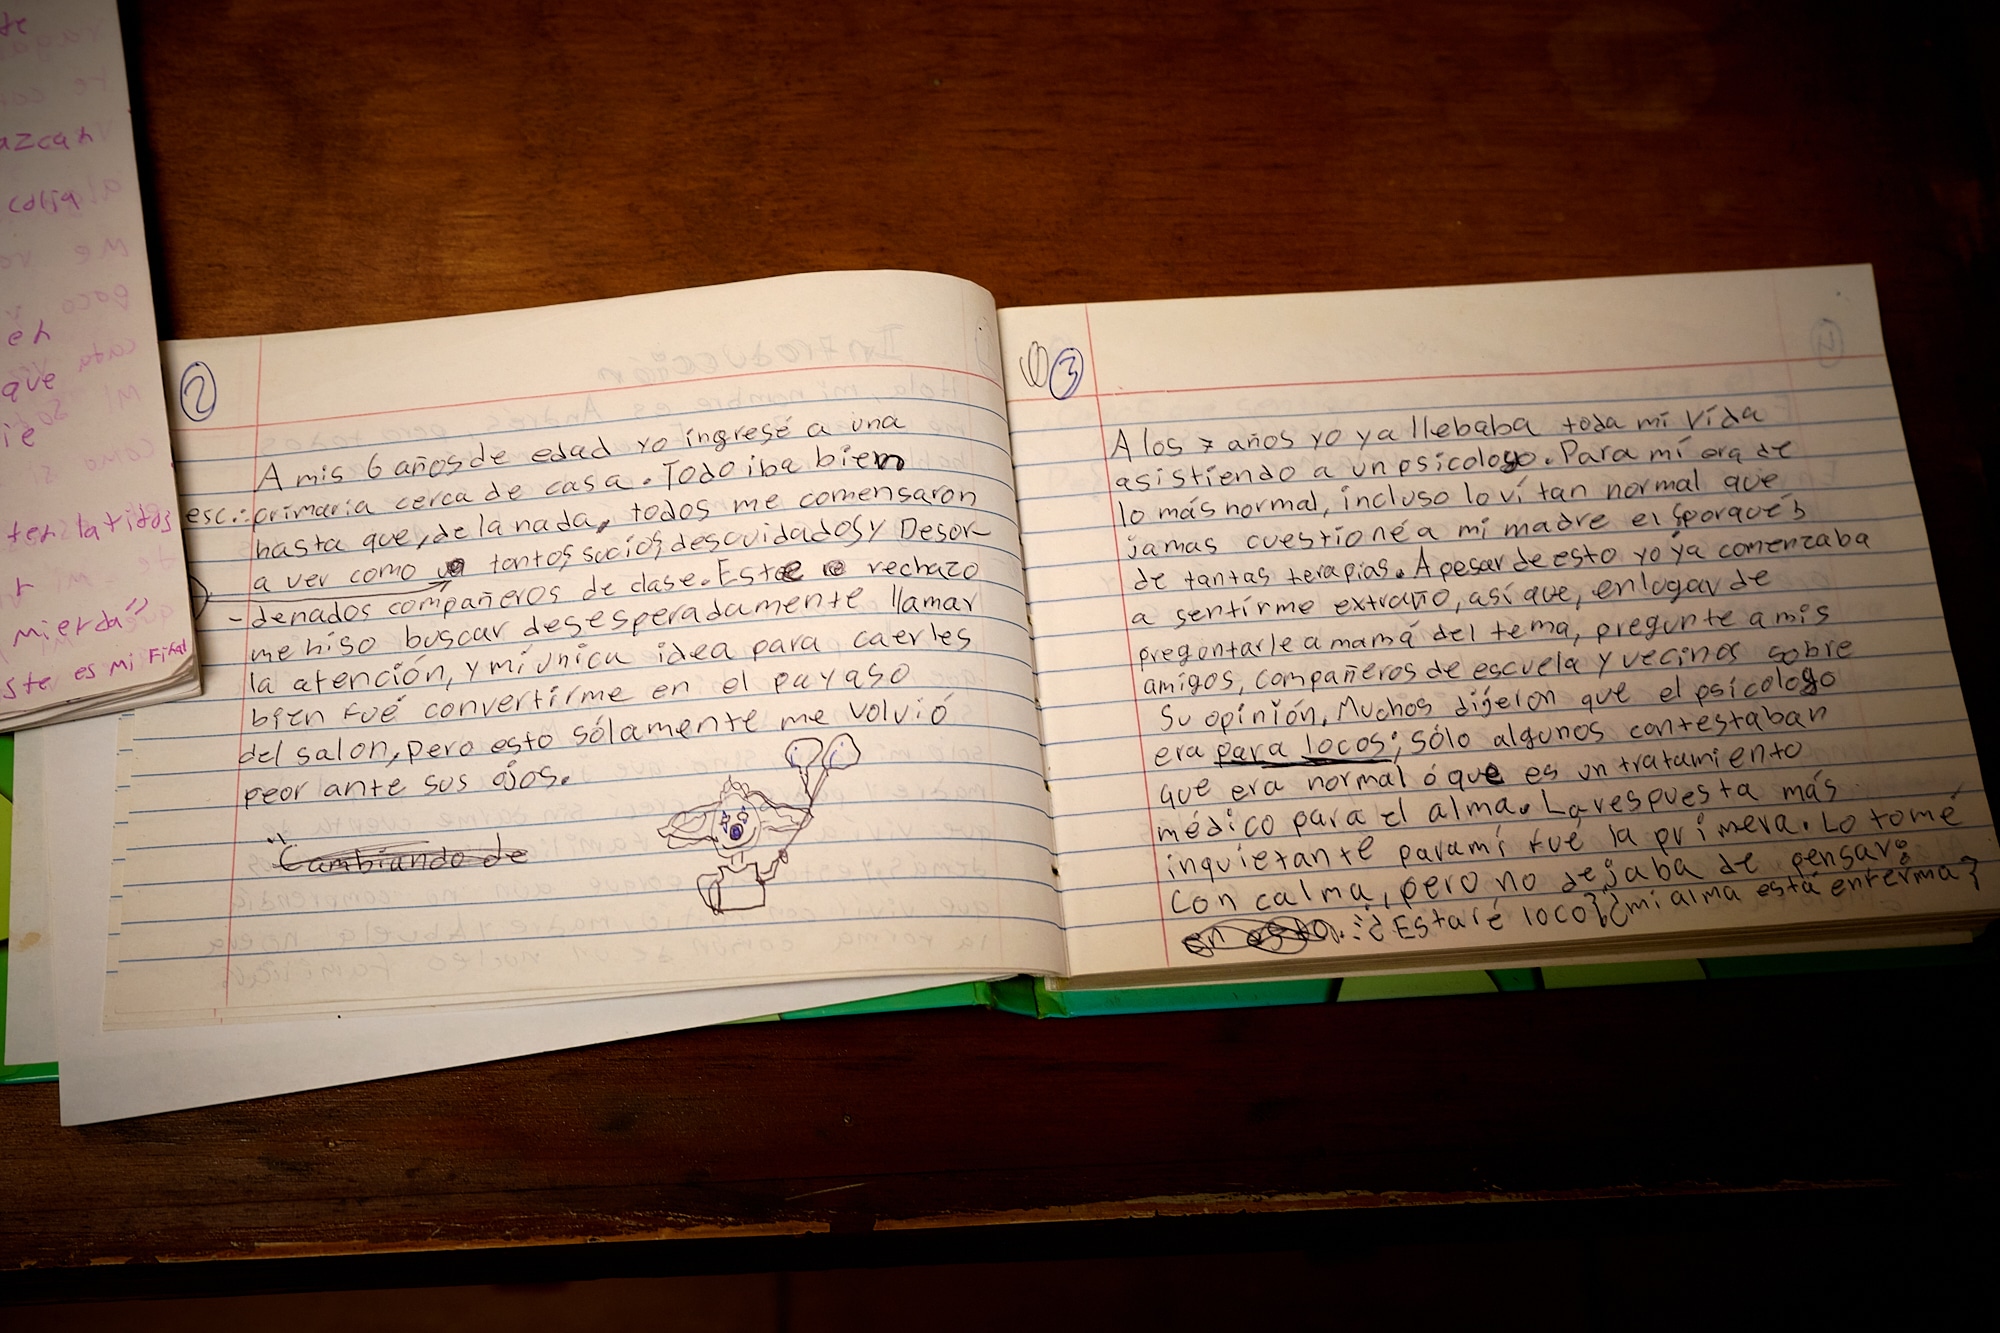 te
azcan
colia
en
que
ie
ter latidos
r
mierda"
ste es mi Final
2
A mis 6 años de edad yo ingresé a una
esc.: primaria cerca de casa. Todo iba bien
hasta que, de la nada, todos me comensaron
a ver como tontos, sucios, descuidados y Desor-
-denados compañeros de clase. Este rechazo
me hiso buscar desesperadamente llamar
la atención, y mi única idea para caerles
bien fué convertirme en el payaso
del salon, pero esto sólamente me volvió
peor ante sus ojos.
Cambiando de
3
A los 7 años yo ya llebaba toda mi vida
asistiendo a un psicologo. Para mí era de
lo más normal, incluso lo ví tan normal que
jamas cuestioné a mi madre el ¿porqué?
de tantas terapias. A pesar de esto yo ya comenzaba
a sentirme extraño, así que, en lugar de
preguntarle a mamá del tema, pregunte a mis
amigos, compañeros de escuela y vecinos sobre
su opinión, Muchos dijeron que el psicologo
era para locos; sólo algunos contestaban
que era normal ó que es un tratamiento
médico para el alma. La respuesta más
inquietante para mí fué la primera. Lo tomé
con calma, pero no dejaba de pensar:
en esto. :¿Estaré loco? ¿mi alma está enferma?